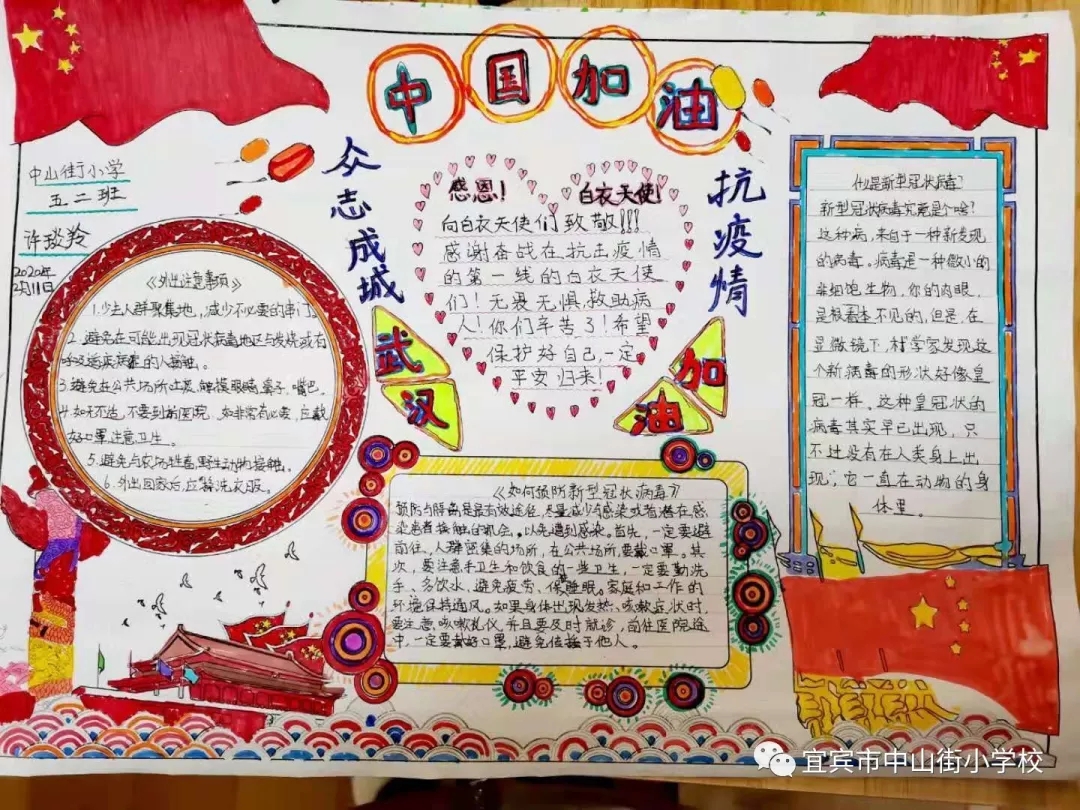 中国加油
中山街小学
五二班
许琰羚
2020年
2月11日
众志成城
抗疫情
感恩！ 白衣天使！
向白衣天使们致敬!!!
感谢奋战在抗击疫情
的第一线的白衣天使
们！无畏无惧,救助病
人！你们辛苦了！希望
保护好自己,一定
平安归来！
武汉
加油
《外出注意事项》
1.少去人群聚集地,减少不必要的串门。
2.避免在可能出现冠状病毒地区与发烧或有
呼吸道疾病的人接触。
3.避免在公共场所吐痰,触摸眼睛,鼻子,嘴巴。
4.如无不适,不要到前医院,如非常有必要,应戴
好口罩,注意卫生。
5.避免与农场牲畜,野生动物接触。
6.外出回家后,应替洗衣服。
《如何预防新型冠状病毒》
预防与肺病是最有效途径,尽量减少与感染或者潜在感
染患者接触的机会。以免遭到感染。首先,一定要避
前往,人群密集的场所,在公共场所要戴口罩。其
次,要注意手卫生和饮食的一些卫生,一定要勤洗
手、多饮水、避免疲劳、保睡眠。家庭和工作的
环境保持通风。如果身体出现发热、咳嗽症状时,
要注意,咳嗽礼仪,并且要及时就诊,前往医院途
中,一定要戴好口罩,避免传播于他人。
什么是新型冠状病毒？
新型冠状病毒究竟是个啥？
这种病,来自于一种新发现
的病毒。病毒是一种微小的
非细胞生物,你的肉眼,
是根本看不见的,但是,在
显微镜下,科学家发现这
个新病毒的形状好像皇
冠一样。这种皇冠状的
病毒其实早已出现,只
不过没有在人类身上出
现;它一直在动物的身
体里。
宜宾市中山街小学校